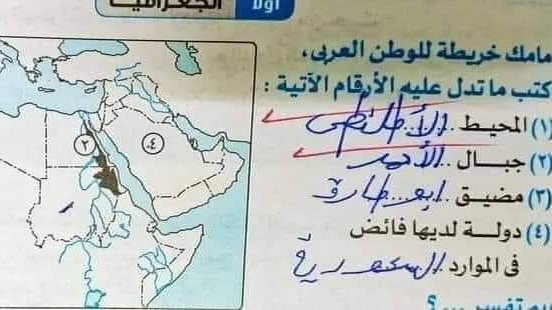 أولا الجغرافيا
مامك خريطة للوطن العربى،
كتب ما تدل عليه الأرقام الآتية :
(١) المحيط ..الأطلنطى
(٢) جبال ..الأحمر
(٣) مضيق ..ابو طارق
(٤) دولة لديها فائض
فى الموارد ..السعودية
٢
٤
بم تفسر ...؟